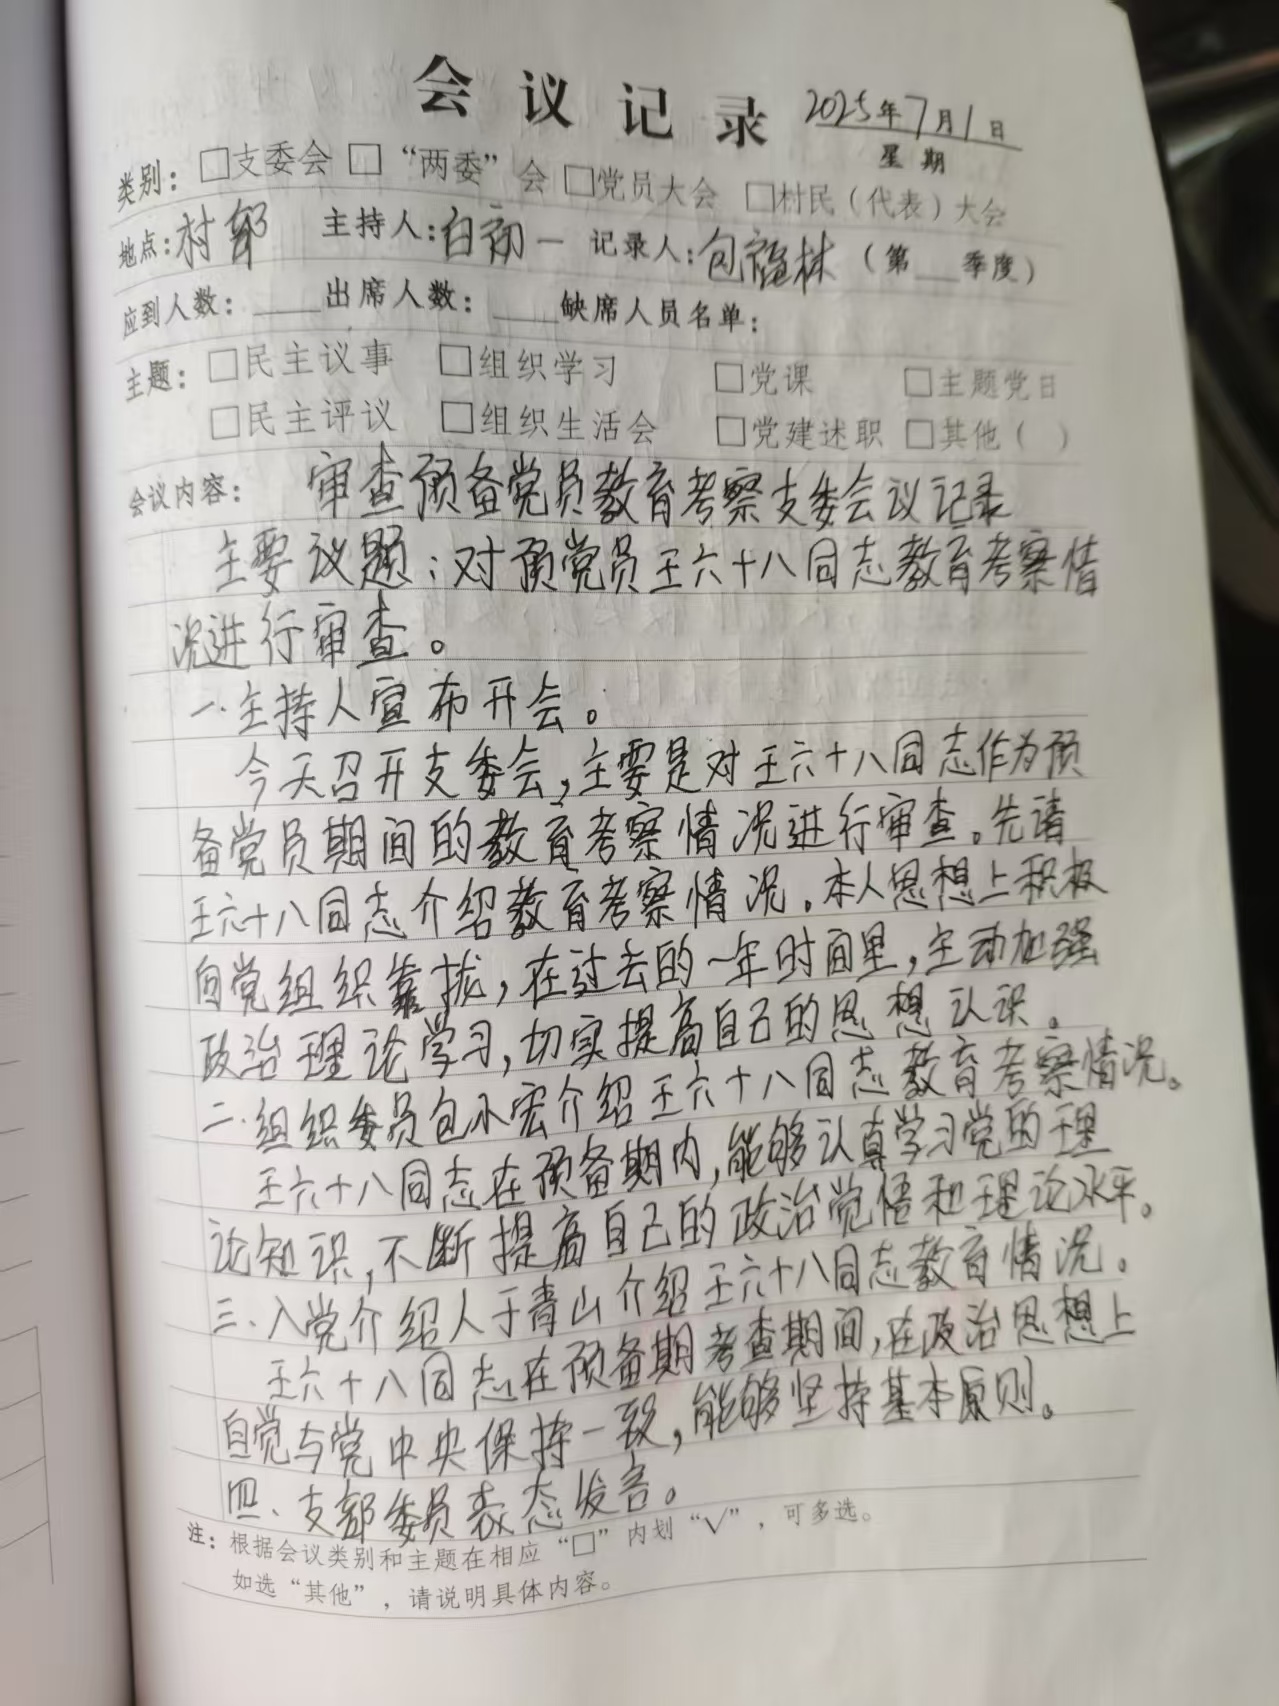 会议记录 2025年7月1日
星期
类别：□支委会 □“两委”会 □党员大会 □村民（代表）大会
地点：村部 主持人：白初一 记录人：包福林 （第__季度）
应到人数：____出席人数：____缺席人员名单：
主题：□民主议事 □组织学习 □党课 □主题党日
□民主评议 □组织生活会 □党建述职 □其他（ ）
会议内容： 审查预备党员教育考察支委会议记录
主要议题：对预党员王六十八同志教育考察情
况进行审查。
一.主持人宣布开会。
今天召开支委会，主要是对王六十八同志作为预
备党员期间的教育考察情况进行审查。先请
王六十八同志介绍教育考察情况。本人思想上积极
向党组织靠拢，在过去的一年时间里，主动加强
政治理论学习，切实提高自己的思想认识。
二.组织委员包小宏介绍王六十八同志教育考察情况。
王六十八同志在预备期内，能够认真学习党的理
论知识，不断提高自己的政治觉悟和理论水平。
三、入党介绍人于青山介绍王六十八同志教育情况。
王六十八同志在预备期考查期间，在政治思想上
自觉与党中央保持一致，能够坚持基本原则。
四、支部委员表态发言。
注：根据会议类别和主题在相应“□”内划“√”，可多选。
如选“其他”，请说明具体内容。